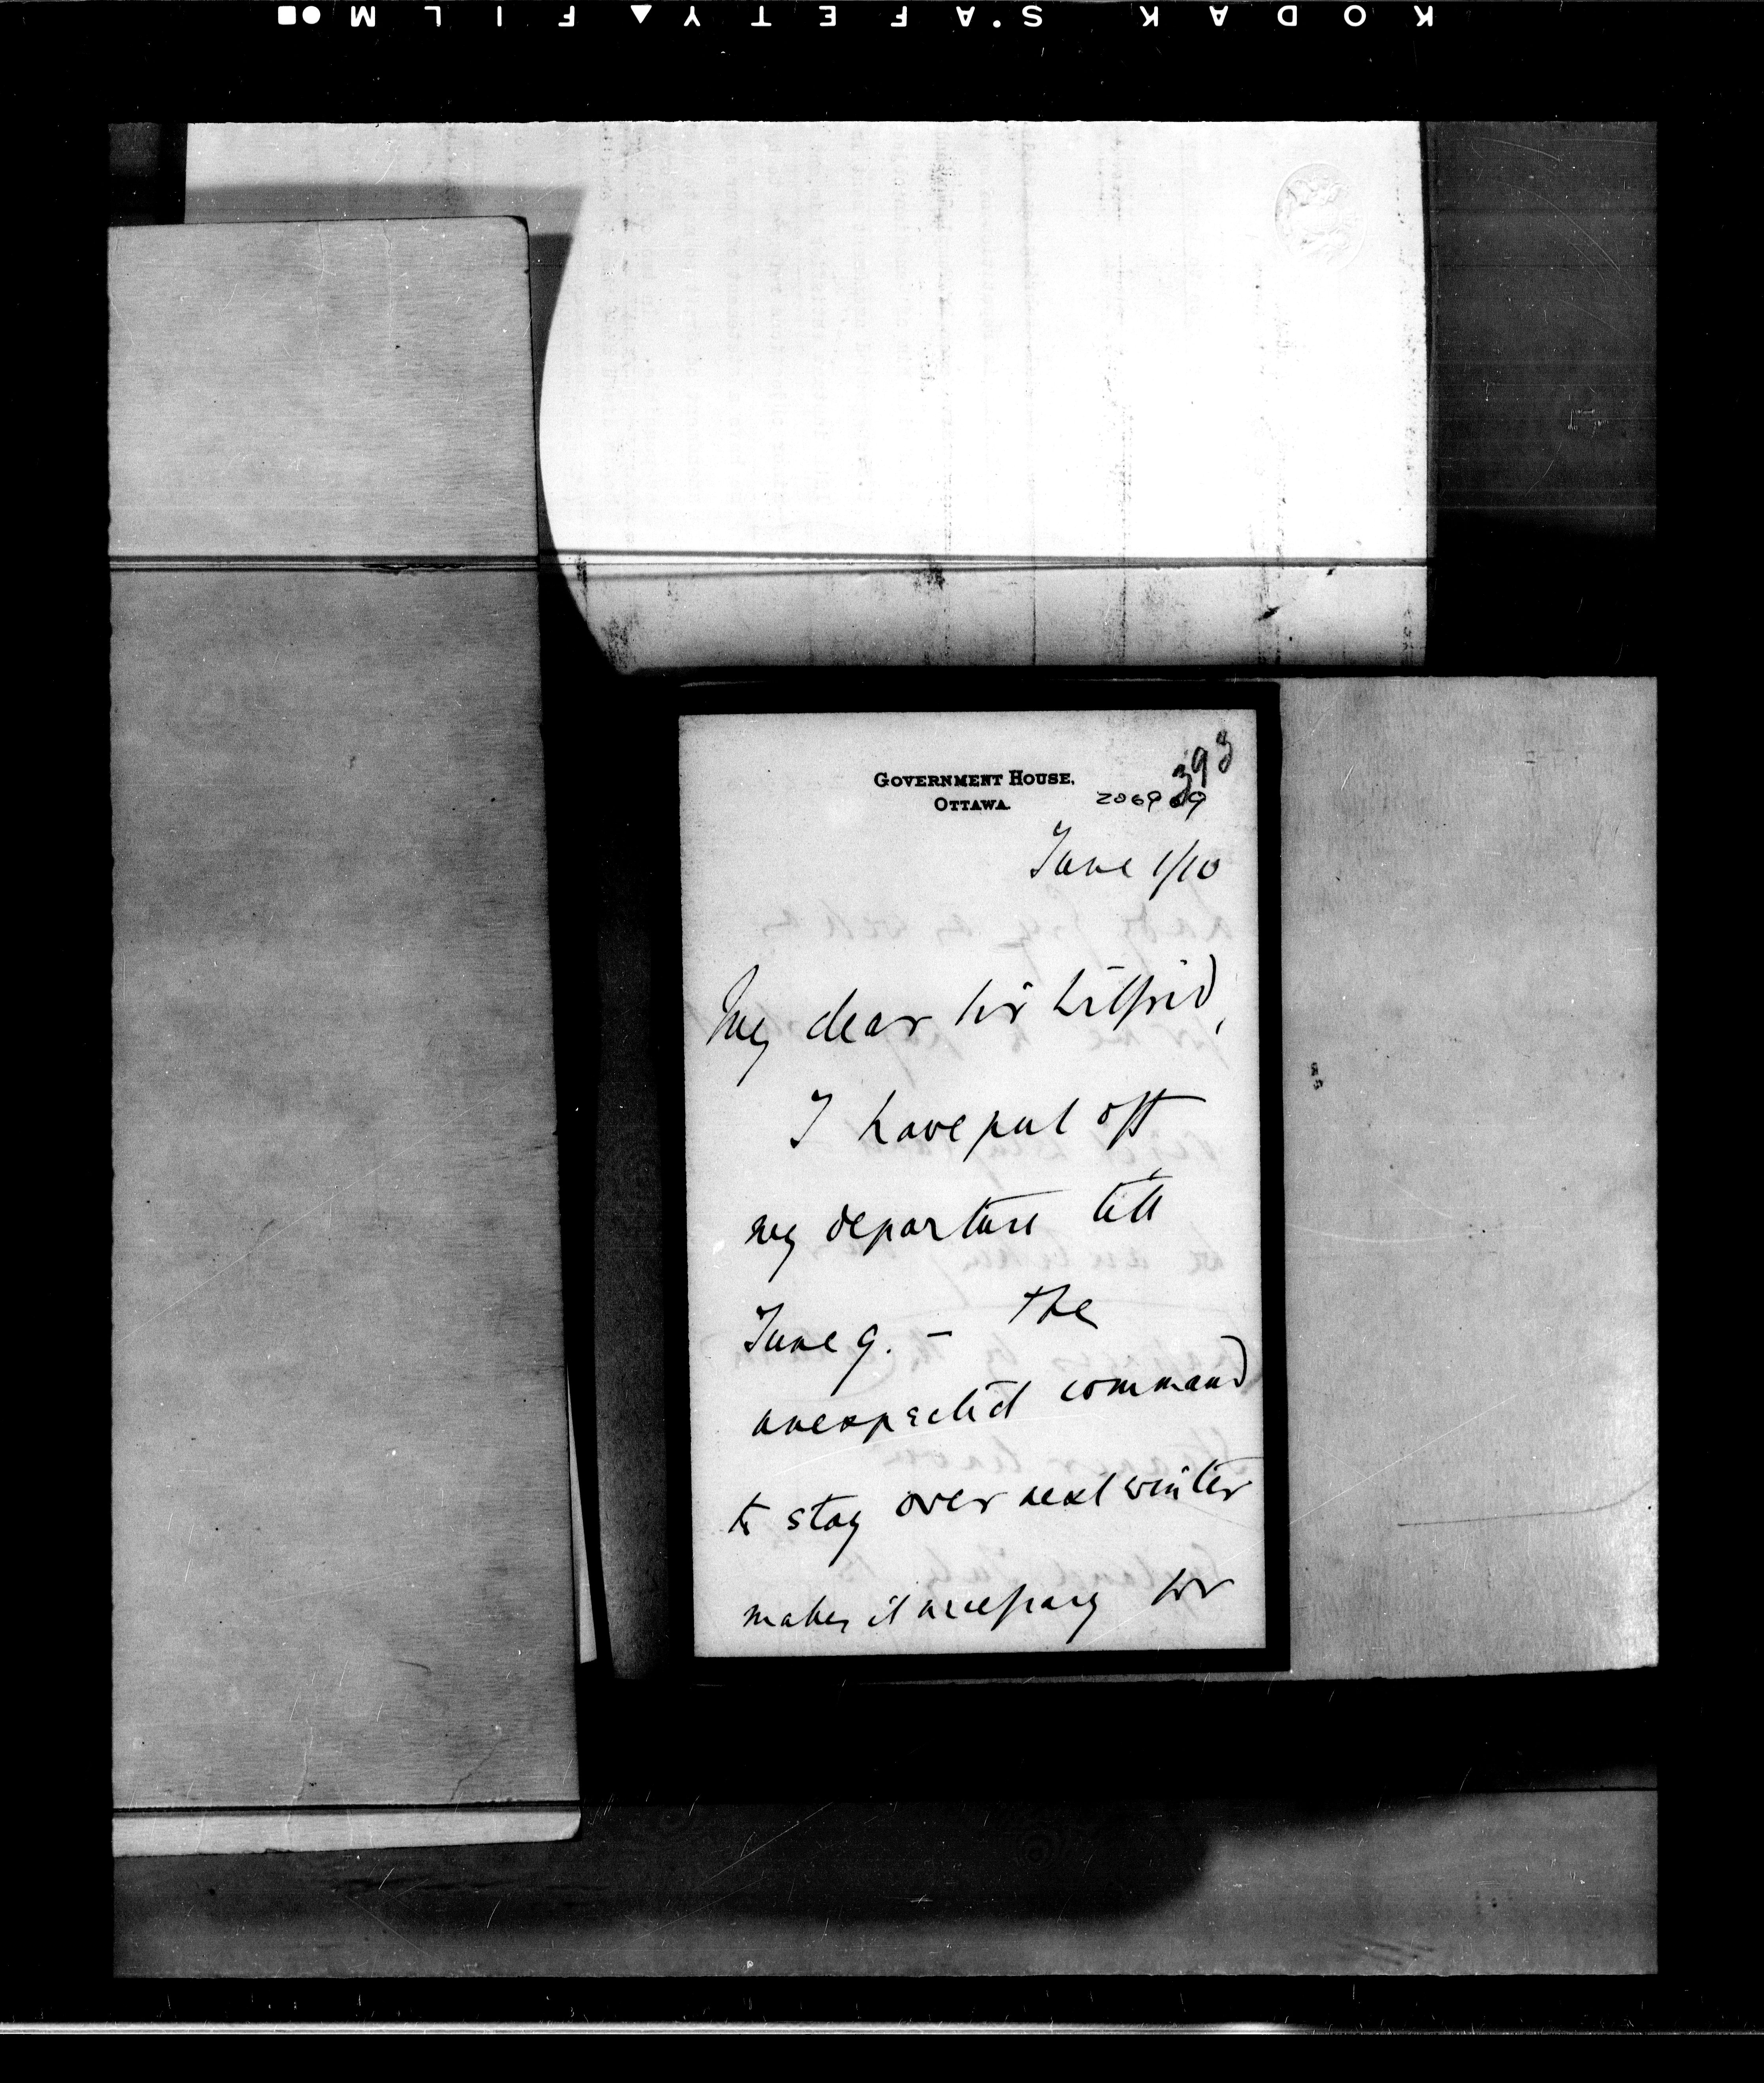 KODAK S'AFETY FILM
393
GOVERNMENT HOUSE,
OTTAWA.
206909
June 1/10
My dear Sir Wilfrid,
I have put off
my departure till
June 9. — The
unexpected command
to stay over next winter
makes it necessary for